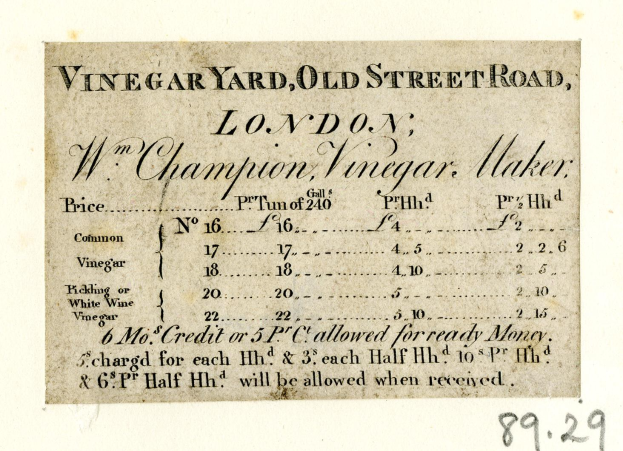 VINEGAR YARD, OLD STREET ROAD,
LONDON;
Wm. Champion, Vinegar Maker;
Price.................... Pr. Tun of Galls 240 ........ Pr Hhd. ............ Pr ½ Hhd
Common Vinegar { No 16 .... £ 16 „ „ ........ £ 4 „ „ ............ £ 2 „ „
17 ........ 17 „ „ ............ 4 „ 5 „ ............ 2 „ 2 „ 6
18 ........ 18 „ „ ............ 4 „ 10 „ ............ 2 „ 5 „
Pickling or White Wine Vinegar { 20 ........ 20 „ „ ............ 5 „ „ ............ 2 „ 10 „
22 ........ 22 „ „ ............ 5 „ 10 „ ............ 2 „ 15 „
6 Mos. Credit or 5 Pr. Ct. allowed for ready Money.
5s. chargd for each Hhd. & 3s. each Half Hhd. 10s Pr Hhd.
& 6s. Pr Half Hhd. will be allowed when received.
89.29